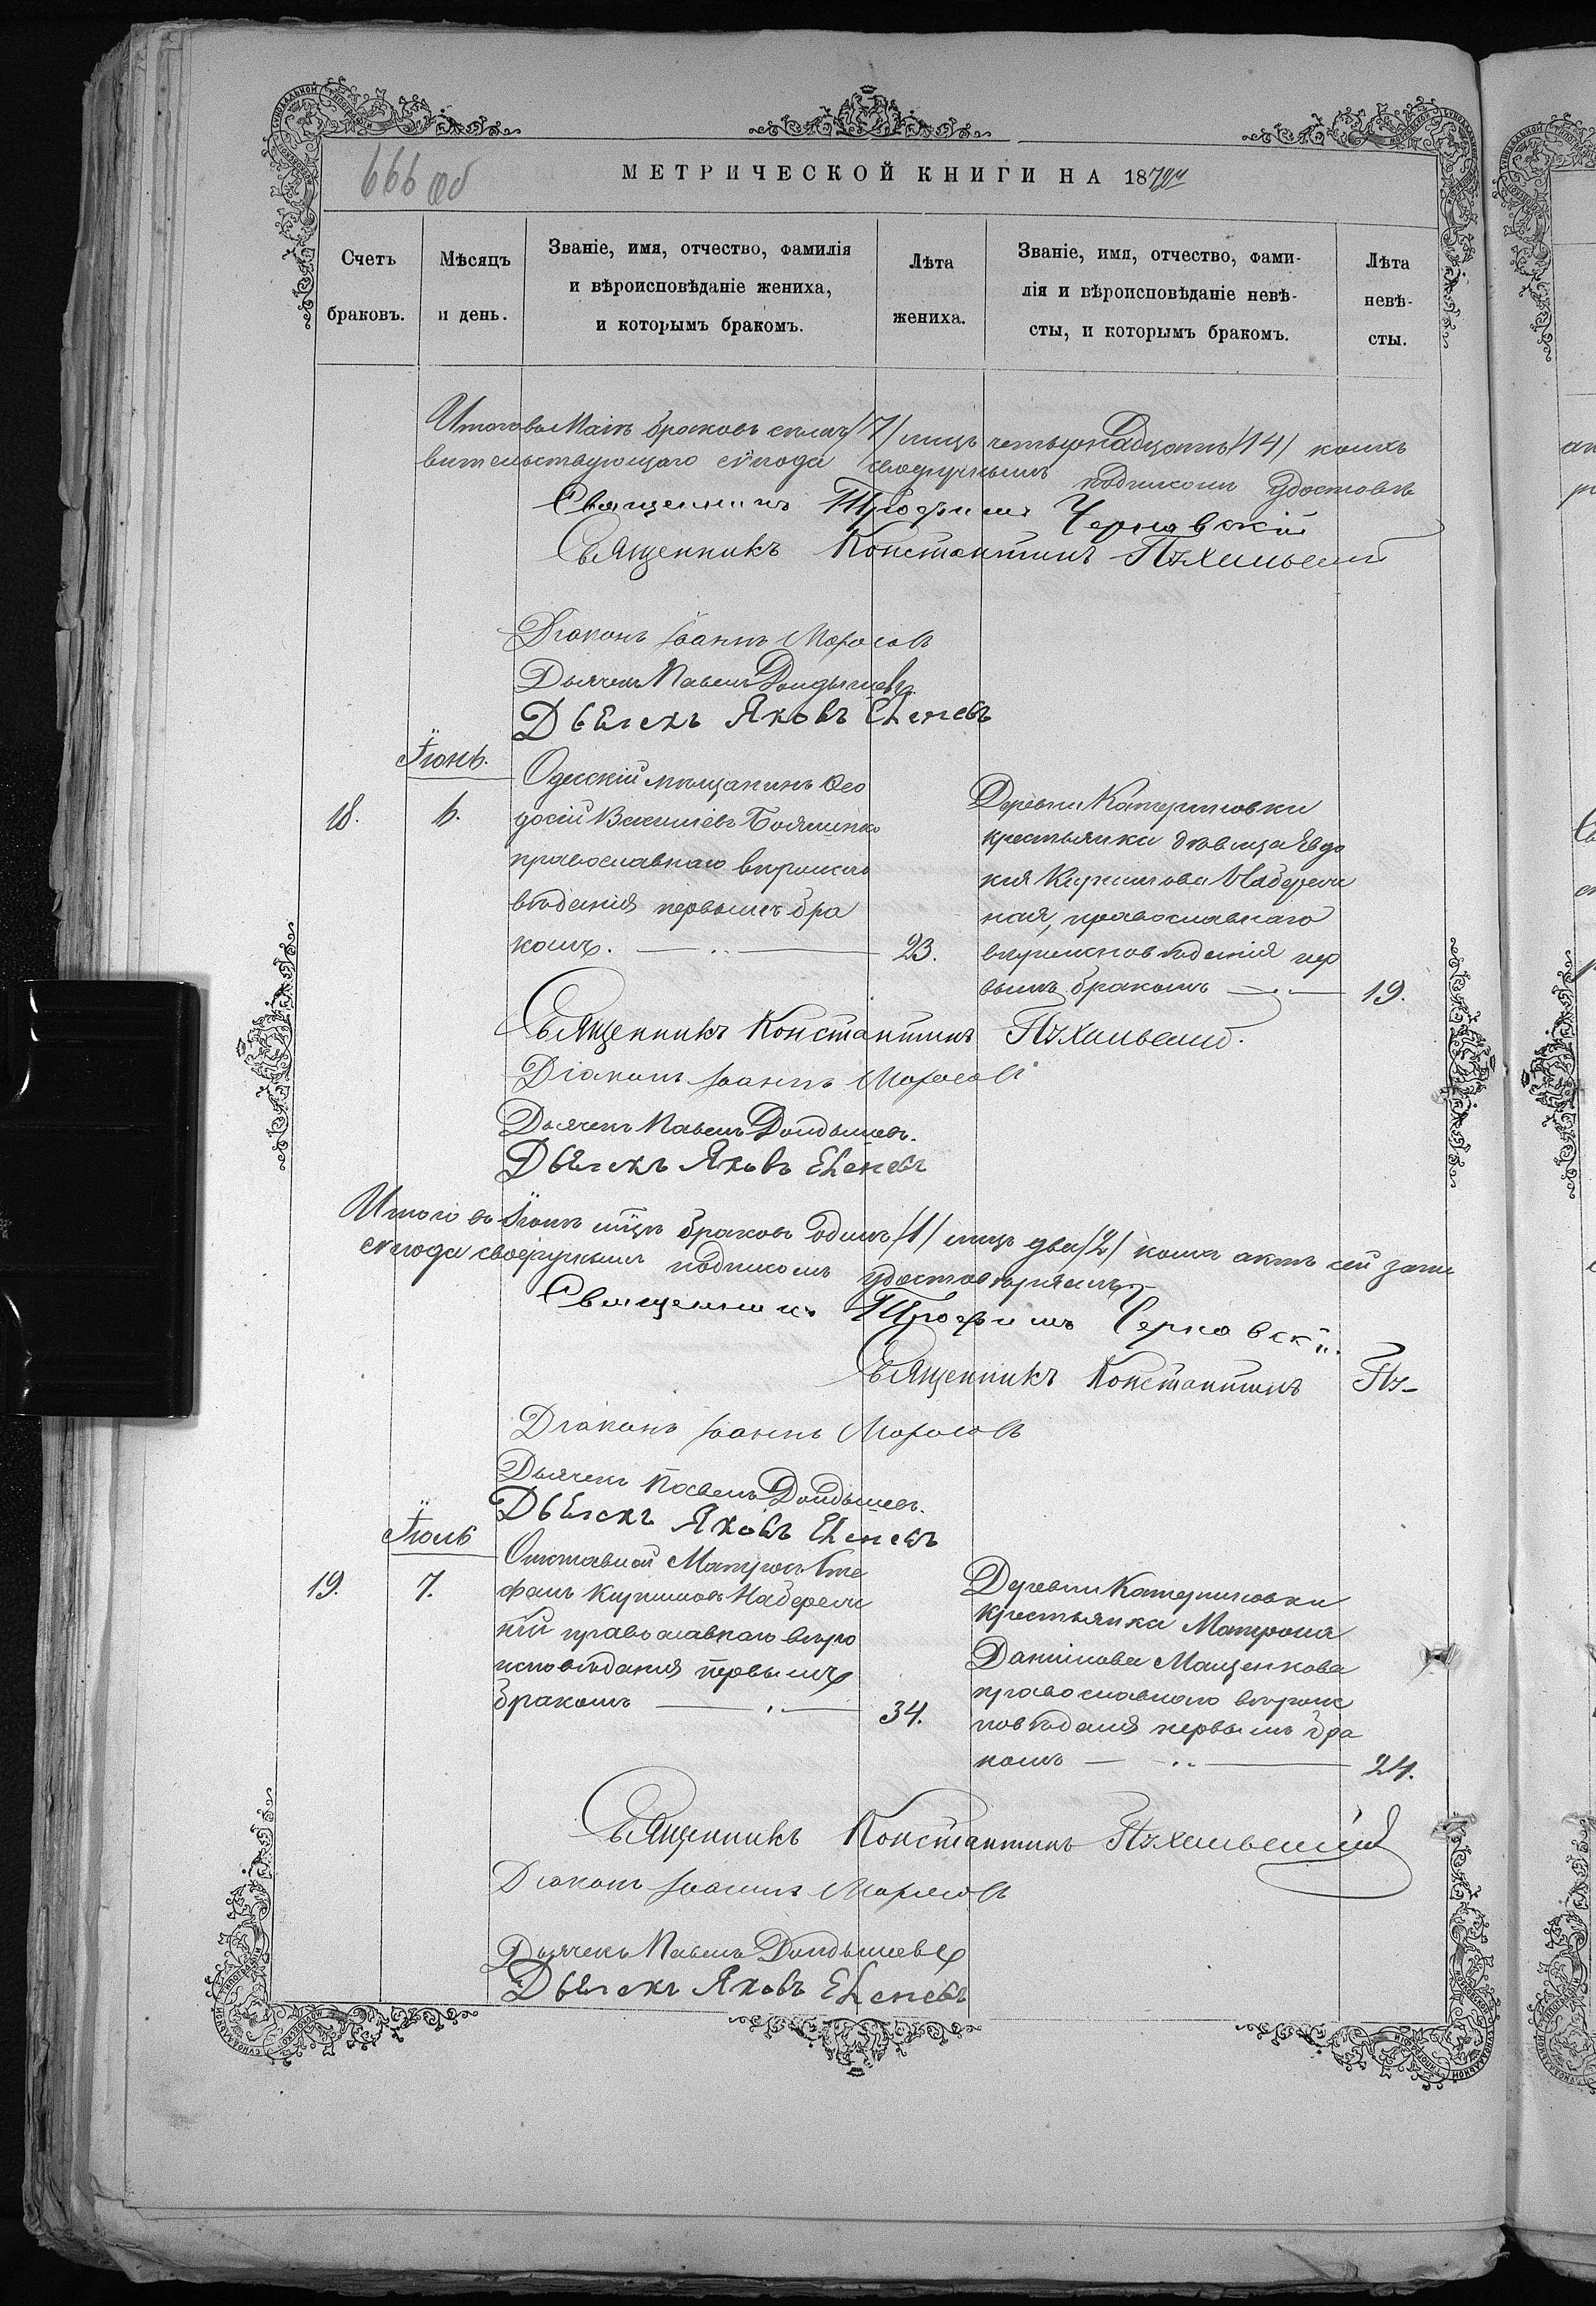 666 об
МЕТРИЧЕСКОЙ КНИГИ НА 187
Счетъ браковъ.
Мѣсяцъ и день.
Званіе, имя, отчество, фамилія
и вѣроисповѣданіе жениха,
и которымъ бракомъ.
Лѣта жениха.
Званіе, имя, отчество, фами-
лія и вѣроисповѣданіе невѣ-
сты, и которымъ бракомъ.
Лѣта невѣ-
сты.
Итого въ Маіѣ браковъ семь /7/ лицъ четырнадцать /14/ коихъ
вительствующаго с νнода своеручнымъ подписомъ удостовѣ
Священникъ Трофимъ Черновскій
Священникъ Константинъ
Діаконъ Іоаннъ Моросовъ
Дьячекъ Павелъ
Дьячекъ Яковъ
Іюнь.
18.
6.
Одескій мѣщанинъ Ѳео
досій
православнаго вѣроиспо
вѣданія первымъ бра
комъ.
23.
Деревни Катериновки
крестьянка дѣвица Евдо
кія Кирилова Набереж
ная, православнаго
вѣроисповѣданія пер
вымъ бракомъ
19.
Священникъ Константинъ
Діаконъ Іоаннъ Моросовъ
Дьячекъ Павелъ
Дьячекъ Яковъ
Итого въ Іюнѣ мцѣ браковъ одинъ /1/ лицъ два /2/ коихъ актъ сей запи
с νнода своеручнымъ подписомъ удостовѣряемъ
Священникъ Трофимъ Черновскій.
Священникъ Константинъ
Діаконъ Іоаннъ Моросовъ
Дьячекъ Павелъ
Дьячекъ Яковъ
Іюль
19.
7.
Отставной Матросъ Сте
фанъ Кириловъ Набереж
ній православнаго вѣро
исповѣданія первымъ
бракомъ
34.
Деревни Катериновки
крестьянка Матрона
Данилова Мащенкова
православнаго вѣроис
повѣданія первымъ бра
комъ
24.
Священникъ Константинъ
Діаконъ Іоаннъ Моросовъ
Дьячекъ Павелъ
Дьячекъ Яковъ